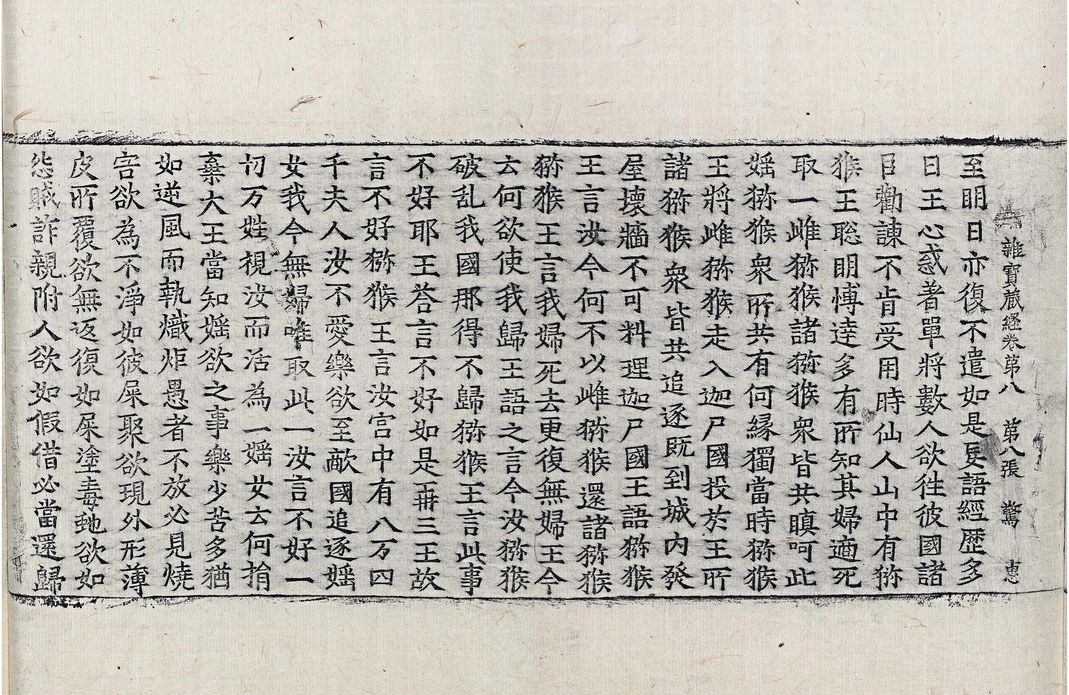 雜寶藏経卷第八 第八張 驚 惠
至明日亦復不遣如是更語經歷多
日王心惑著單將數人欲徃彼國諸
臣勸諫不肯受用時仙人山中有猕
猴王聡明愽逹多有所知其婦適死
取一雌猕猴諸猕猴衆皆共瞋呵此
婬猕猴衆所共有何縁獨當時猕猴
王將雌猕猴走入迦尸國投於王所
諸猕猴衆皆共追逐既到城内發
屋壞牆不可料理迦尸國王語猕猴
王言汝今何不以雌猕猴還諸猕猴
猕猴王言我婦死去更復無婦王今
云何欲使我歸王語之言今汝猕猴
破乱我國那得不歸猕猴王言此事
不好耶王荅言不好如是再三王故
言不好猕猴王言汝宫中有八万四
千夫人汝不愛樂欲至敵國追逐婬
女我今無婦唯取此一汝言不好一
切万姓視汝而活為一婬女云何捐
棄大王當知婬欲之事樂少苦多猶
如逆風而執熾炬愚者不放必見燒
害欲為不淨如彼屎聚欲現外形薄
皮所覆欲無返復如屎塗毒虵欲如
怨賊詐親附人欲如假借必當還歸